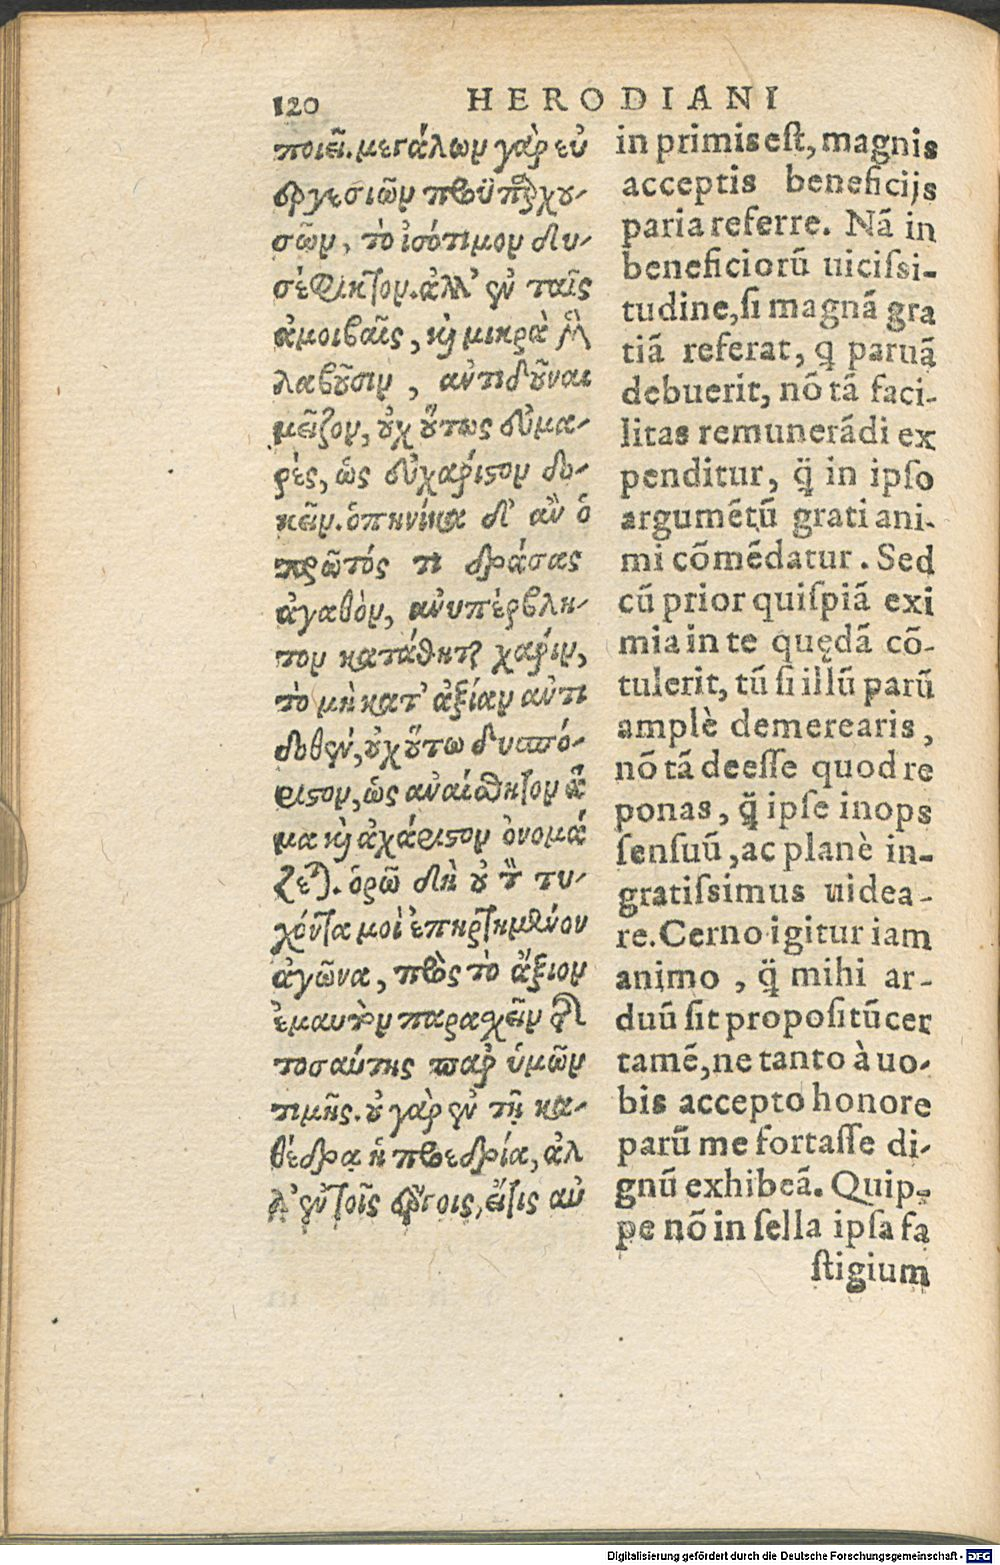 120 HERODIANI
ποιεῖ. μεγάλων γὰρ εὐ
εργεσιῶν προϋπαρχου-
σῶν, τὸ ἰσότιμον δυ-
σέφικτον. ἀλλ' ἐν ταῖς
ἀμοιβαῖς, καὶ μικρὰ μὴ
λαβοῦσιν, ἀντιδοῦναι
μεῖζον, οὐχ οὕτως εὐμα-
ρὲς, ὡς εὐχάριστον δο-
κεῖν. ὁπηνίκα δ' ἂν ὁ
πρῶτός τι δράσας
ἀγαθὸν, ἀνυπέρβλη-
τον κατάθηται χάριν,
τὸ μὴ κατ' ἀξίαν ἀντι
δοθὲν, οὐχ οὕτω δυσπό-
ριστον, ὡς ἀναίσθητον ἅ
μα καὶ ἀχάριστον ὀνομά
ζεται. ὁρῶ δὴ οὐ τὸν τυ-
χόντα μοι ἐπηρτημένον
ἀγῶνα, πρὸς τὸ ἄξιον
ἐμαυτὸν παρασχεῖν τῆς
τοσαύτης παρ' ὑμῶν
τιμῆς. οὐ γὰρ ἐν τῇ κα-
θέδρᾳ ἡ προεδρία, ἀλ
λ' ἐν τοῖς ἔργοις, εἴ τις αὐ
in primis est, magnis
acceptis beneficijs
paria referre. Nã in
beneficiorũ uicissi-
tudine, si magnã gra
tiã referat, q̃ paruã
debuerit, nõ tã faci-
litas remunerãdi ex
penditur, q̃ in ipso
argumẽtũ grati ani-
mi cõmẽdatur. Sed
cũ prior quispiã exi
mia in te quędã cõ-
tulerit, tũ si illũ parũ
amplè demerearis,
nõ tã deesse quod re
ponas, q̃ ipse inops
sensuũ, ac planè in-
gratissimus uidea-
re. Cerno igitur iam
animo, q̃ mihi ar-
duũ sit propositũ cer
tamẽ, ne tanto à uo-
bis accepto honore
parũ me fortasse di-
gnũ exhibeã. Quip-
pe nõ in sella ipsa fa
stigium
Digitalisierung gefördert durch die Deutsche Forschungsgemeinschaft - DFG